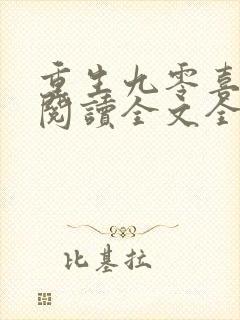 重生九零喜
閱讀全文全
比基拉